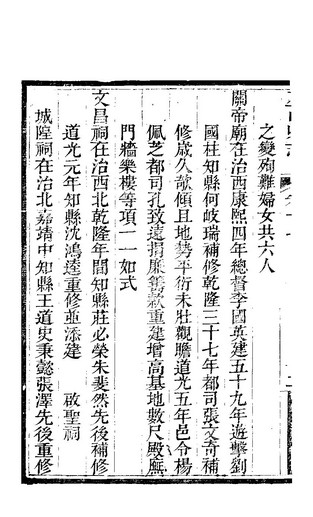 之變殉難婦女共六人
關帝廟在治西康熙四年總督李國英建五十九年遊擊劉
國柱知縣何岐瑞補修乾隆三十七年都司張文奇補
修歲久欹傾且地勢平衍未壯觀瞻道光五年邑令楊
佩芝都司孔致遠捐廉募款重建增高基地數尺殿廡
門牆樂樓等項一一如式
文昌祠在治西北乾隆年間知縣莊必榮朱斐然先後補修
道光元年知縣沈鴻逵重修並添建 啟聖祠
城隍祠在治北嘉靖中知縣王道史秉懿張澤先後重修